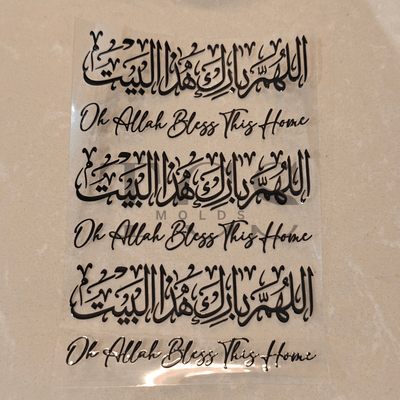 اللهم بارك هذا البيت
Oh Allah Bless This Home
اللهم بارك هذا البيت
MOLDS
Oh Allah Bless This Home
اللهم بارك هذا البيت
Oh Allah Bless This Home